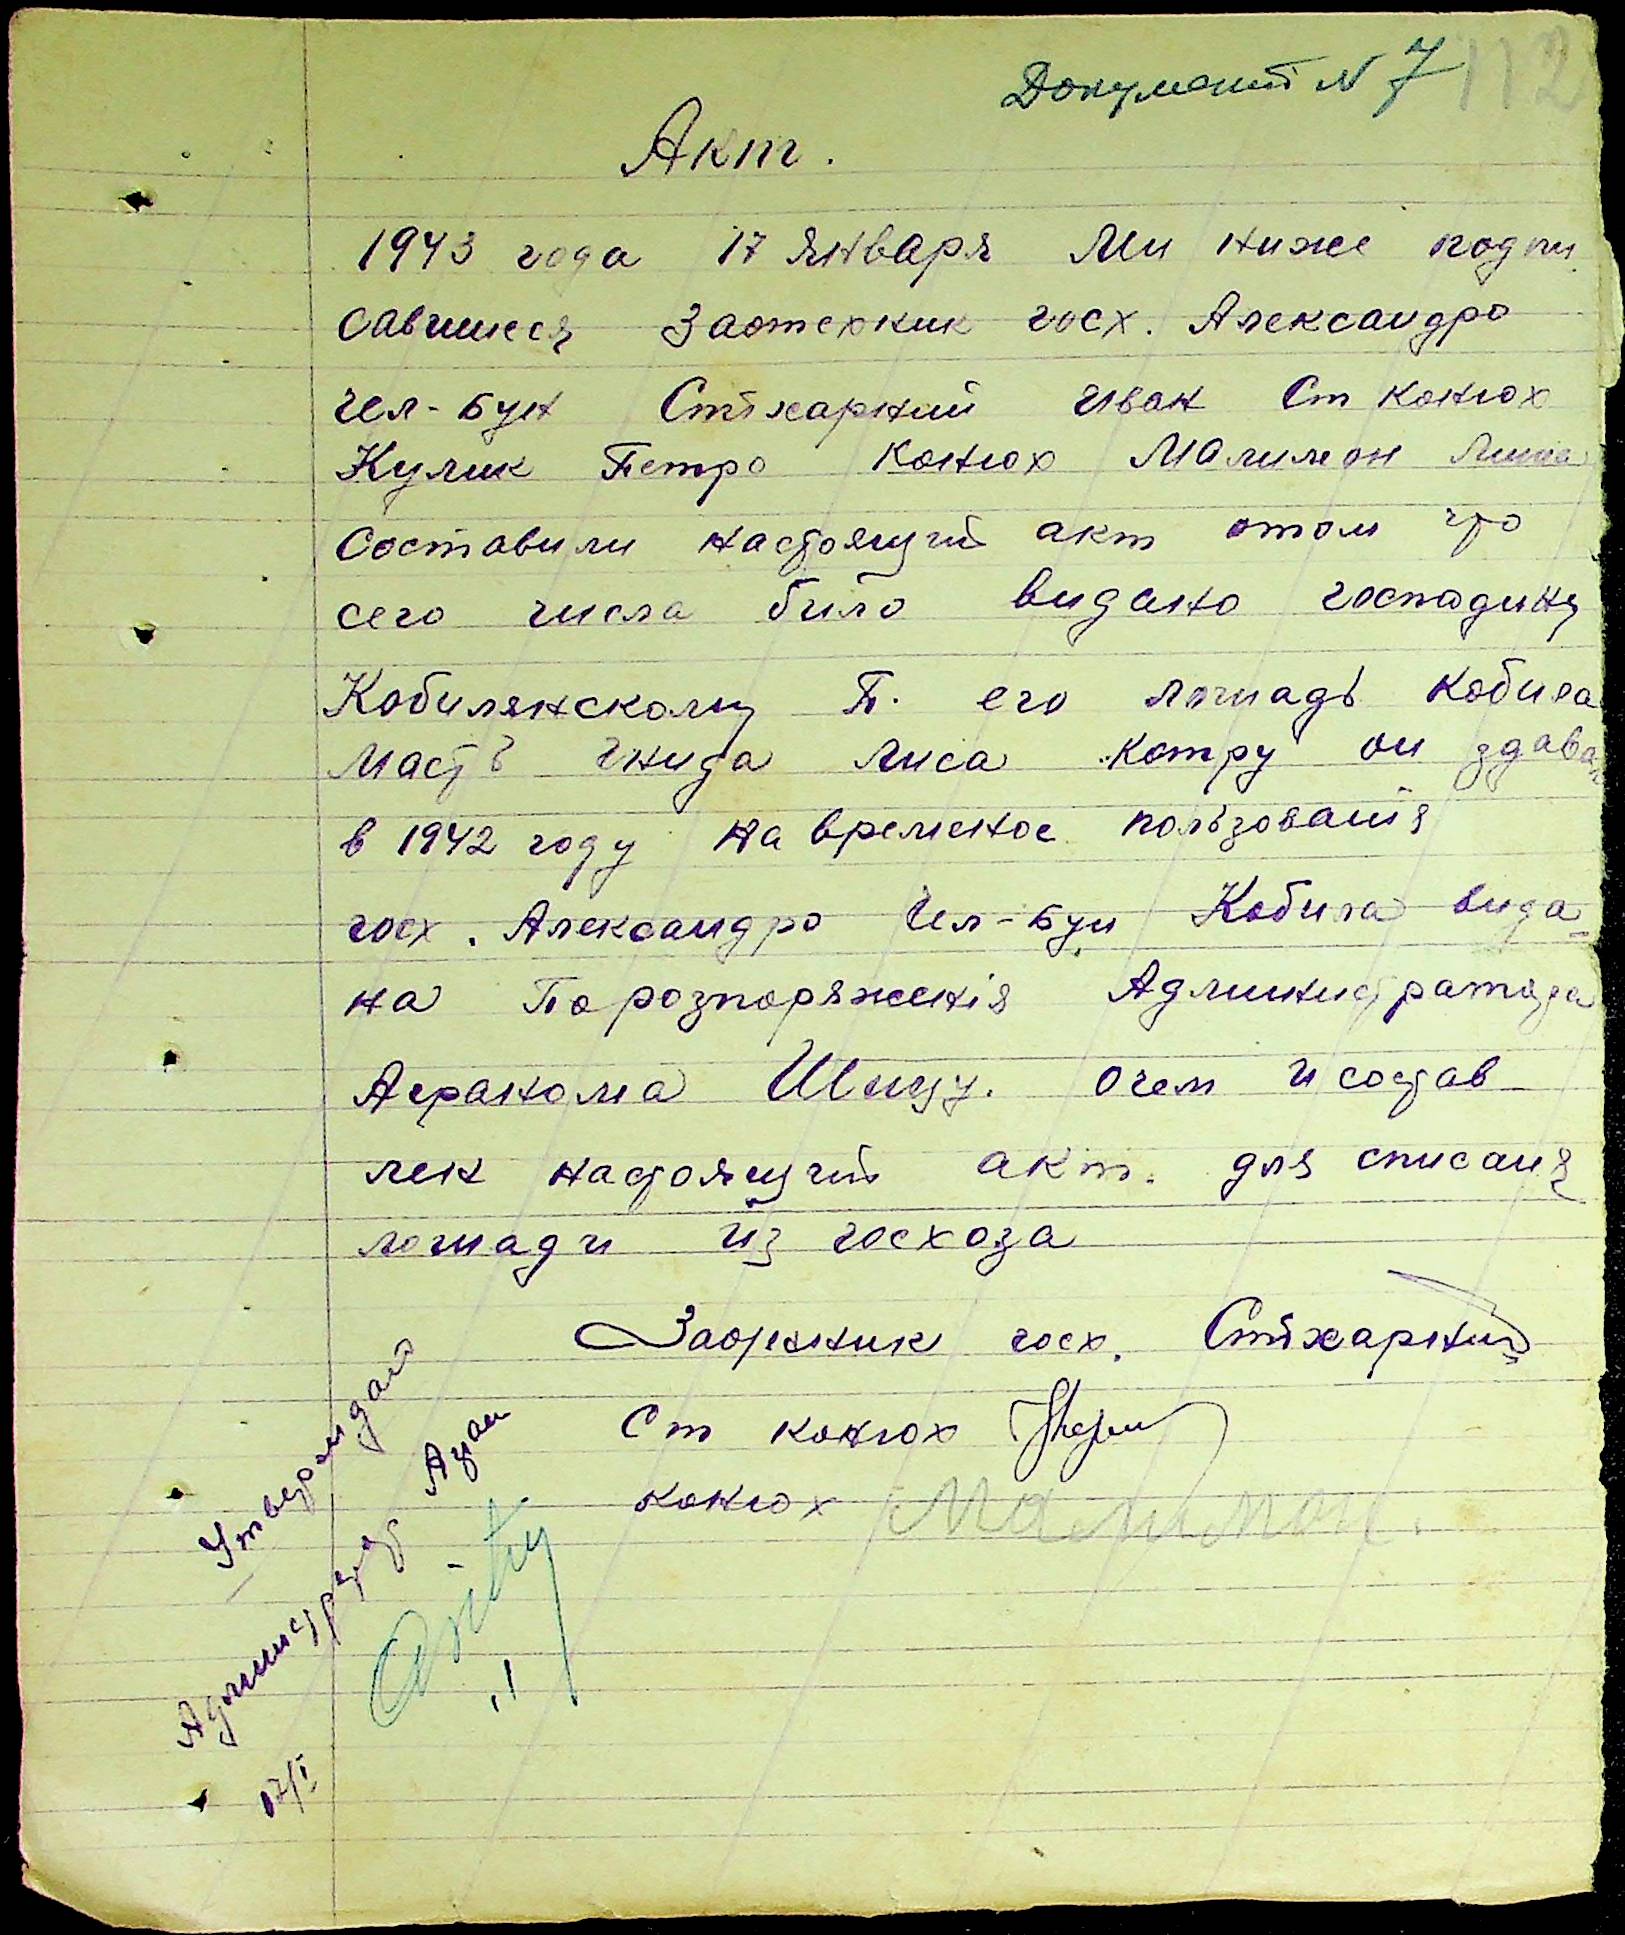 Документ N 7 112
Акт.
1943 года 17 января Ми ниже подпи
савшиеся Заотехник госх. Александро
Чел-Бун Стіхарний Иван Ст конюх
Кулик Петро конюх Малимон
Составили настоящий акт отом что
сего числа било видано господину
Кобилянскому П. его лошадь кобила
масть гнида лиса котру он здавал
в 1942 году на временое пользованія
госх. Александро Чел-Бун Кобила вида-
на По розпоряженія Администратора
Агранома Шицу. очем и состав
лен настоящий акт. для списаня
лошади из госхоза
Заотехник госх. Стіхарний
Ст конюх
конюх Малимон.
Утверждаю
Администратор Аграм
17/I